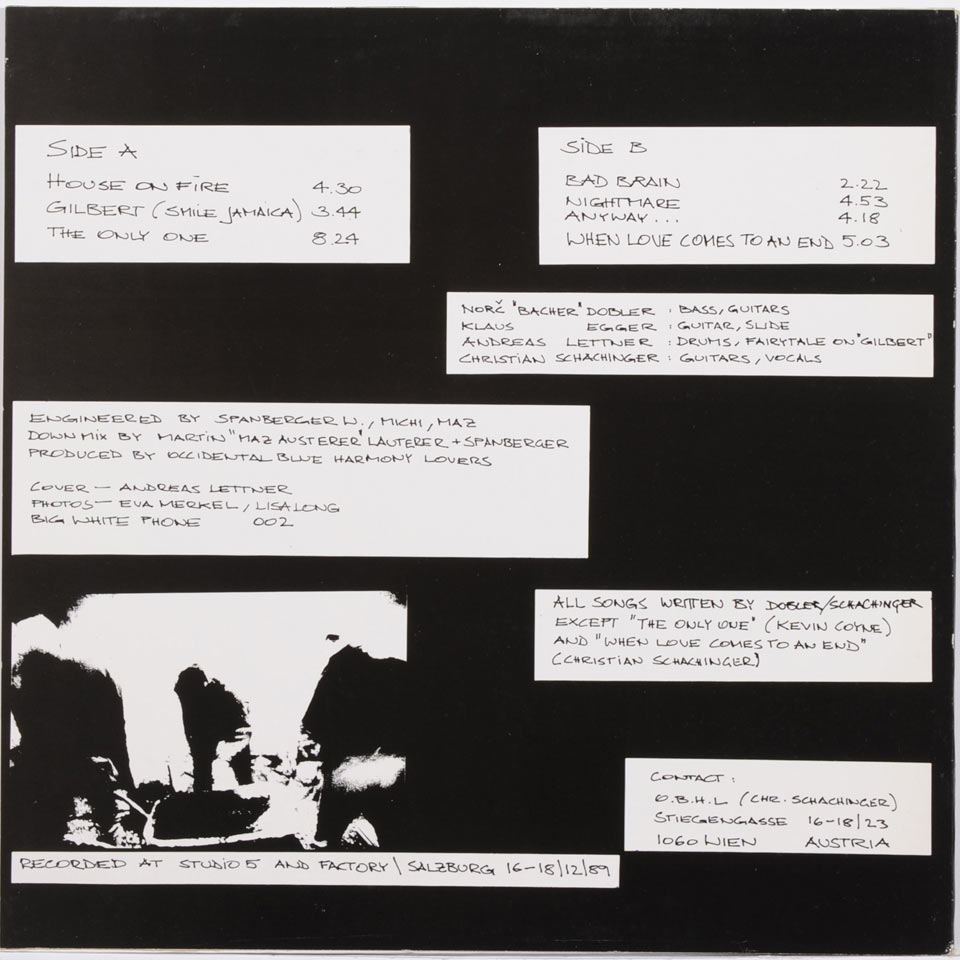 SIDE A
HOUSE ON FIRE 4.30
GILBERT (SMILE JAMAICA) 3.44
THE ONLY ONE 8.24
SIDE B
BAD BRAIN 2.22
NIGHTMARE 4.53
ANYWAY... 4.18
WHEN LOVE COMES TO AN END 5.03
NORČ "BACHER" DOBLER : BASS, GUITARS
KLAUS EGGER : GUITAR, SLIDE
ANDREAS LETTNER : DRUMS, FAIRYTALE ON "GILBERT"
CHRISTIAN SCHACHINGER : GUITARS, VOCALS
ENGINEERED BY SPANBERGER W., MICHI, MAZ
DOWNMIX BY MARTIN "MAZ AUSTERER" LAUTERER + SPANBERGER
PRODUCED BY OCCIDENTAL BLUE HARMONY LOVERS
COVER — ANDREAS LETTNER
PHOTOS — EVA MERKEL, LISA LONG
BIG WHITE PHONE 002
ALL SONGS WRITTEN BY DOBLER/SCHACHINGER
EXCEPT "THE ONLY ONE" (KEVIN COYNE)
AND "WHEN LOVE COMES TO AN END"
(CHRISTIAN SCHACHINGER)
CONTACT :
O.B.H.L (CHR. SCHACHINGER)
STIEGENGASSE 16-18/23
1060 WIEN AUSTRIA
RECORDED AT STUDIO 5 AND FACTORY \ SALZBURG 16-18/12/89